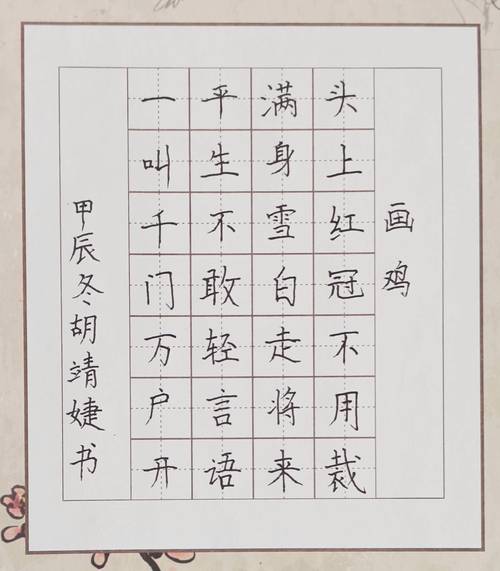 画鸡
头上红冠不用裁
满身雪白走将来
平生不敢轻言语
一叫千门万户开
甲辰冬胡靖婕书